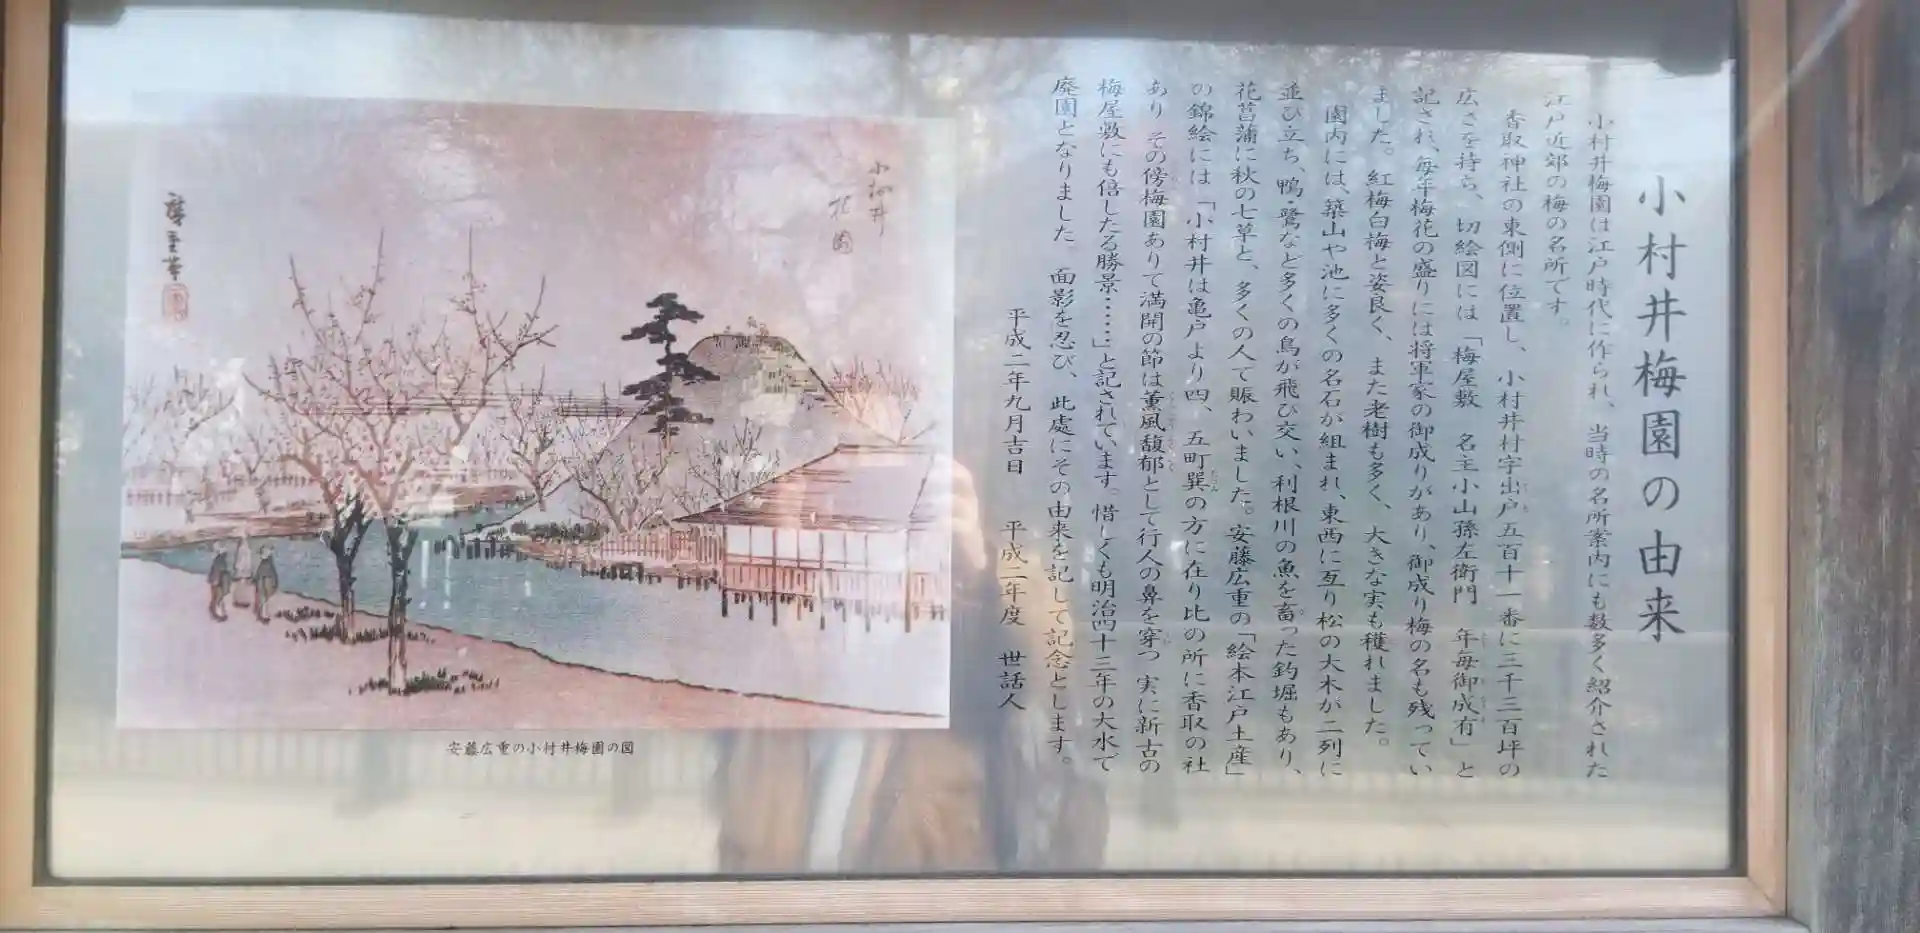 小村井梅園の由来
小村井梅園は江戸時代に作られ、当時の名所案内にも数多く紹介された
江戸近郊の梅の名所です。
香取神社の東側に位置し、小村井村字出戸五百十一番に三千三百坪の
広さを持ち、切絵図には「梅屋敷 名主小山孫左衛門 年毎御成有」と
記され、毎年梅花の盛りには将軍家の御成りがあり、御成り梅の名も残ってい
ました。紅梅白梅と姿良く、また老樹も多く、大きな実も穫れました。
園内には、築山や池に多くの名石が組まれ、東西に亙り松の大木が二列に
並び立ち、鴨・鷺など多くの鳥が飛び交い、利根川の魚を畜った釣堀もあり、
花菖蒲に秋の七草と、多くの人で賑わいました。安藤広重の「絵本江戸土産」
の錦絵には「小村井は亀戸より四、五町巽の方に在り比の所に香取の社
あり その傍梅園ありて満開の節は薫風馥郁として行人の鼻を穿つ 実に新古の
梅屋敷にも倍したる勝景……」と記されています。惜しくも明治四十三年の大水で
廃園となりました 面影を忍び、此處にその由来を記して記念とします。
平成二年九月吉日 平成二年度 世話人
小村井
梅園
廣重筆
安藤広重の小村井梅園の図